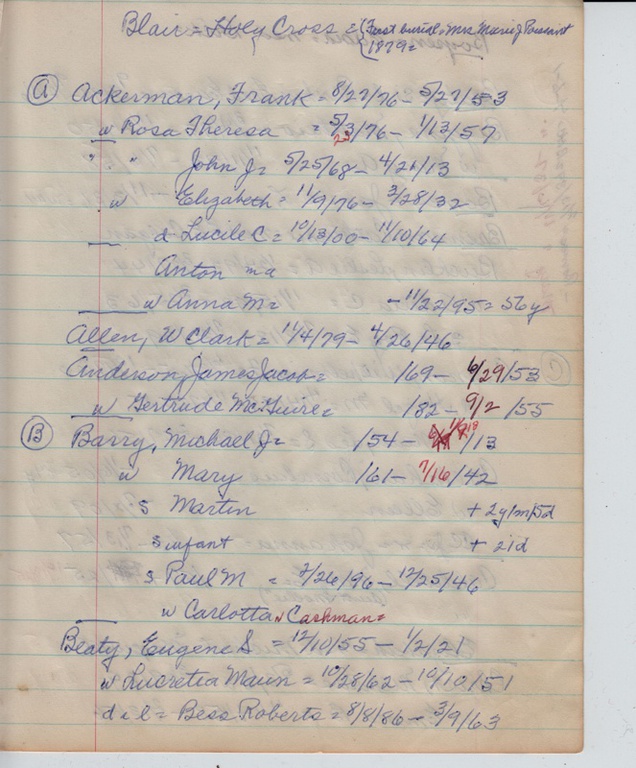 Blair = Holy Cross = {First burial = Mrs. Marie J Poissant
1879=
A Ackerman, Frank = 8/27/76 - 5/27/53
w Rosa Theresa = 5/3/76 - 1/13/57
23
" " John J = 5/25/68 - 4/21/13
w Elizabeth = 11/9/76 - 3/28/32
d Lucile C = 10/13/00 - 11/10/64
Anton
w Anna M = - 11/22/95 = 56y
Allen, W Clark = 11/4/79 - 4/26/46
Anderson, James Jacob = /69 - 6/29/53
w Gertrude McGuire = /82 - 9/2/55
B Barry, Michael J = /54 - /13
w Mary /61 - 7/16/42
s Martin + 2y/m/5d
s infant + 21d
s Paul M = 2/26/96 - 12/25/46
w Carlotta v Cashman =
Beaty, Eugene S = 12/10/55 - 1/2/21
w Lucretia Maun = 10/28/62 - 10/10/51
d i l = Bess Roberts = 8/8/86 - 3/9/63